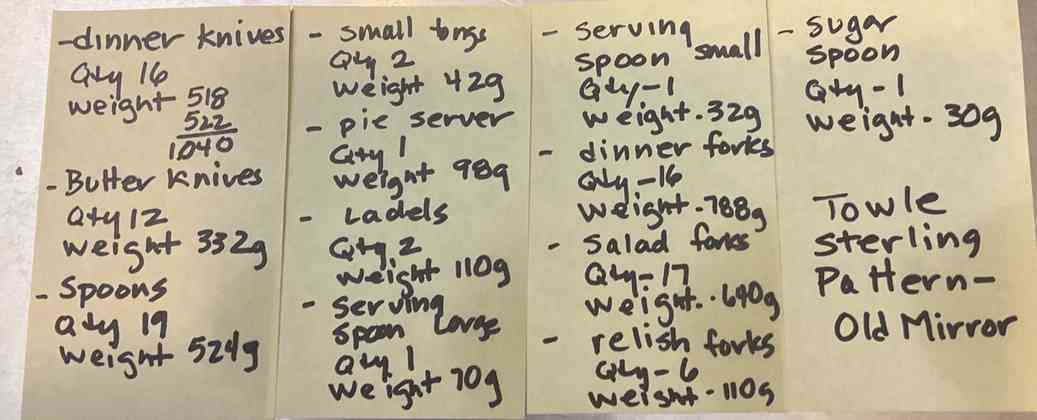 -dinner knives
Qty 16
weight 518
522
1040
-Butter Knives
Qty 12
weight 332g
-Spoons
Qty 19
weight 524g
- small tongs
Qty 2
weight 42g
- pie server
Qty 1
weight 98g
- Ladels
Qty 2
weight 110g
- serving
spoon Large
Qty 1
weight 70g
- serving
spoon small
Qty-1
weight.32g
- dinner forks
Qty-16
weight.788g
- salad forks
Qty-17
weight..640g
- relish forks
Qty-6
weight.110g
- sugar
spoon
Qty-1
weight. 30g
Towle
sterling
Pattern-
Old Mirror